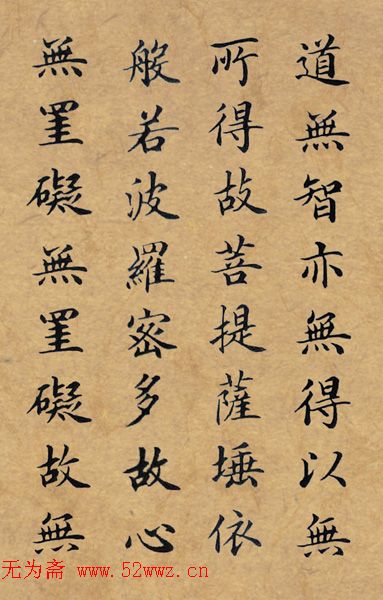 道無智亦無得以無
所得故菩提薩埵依
般若波羅密多故心
無罣礙無罣礙故無
无为斋 www.52wwz.cn